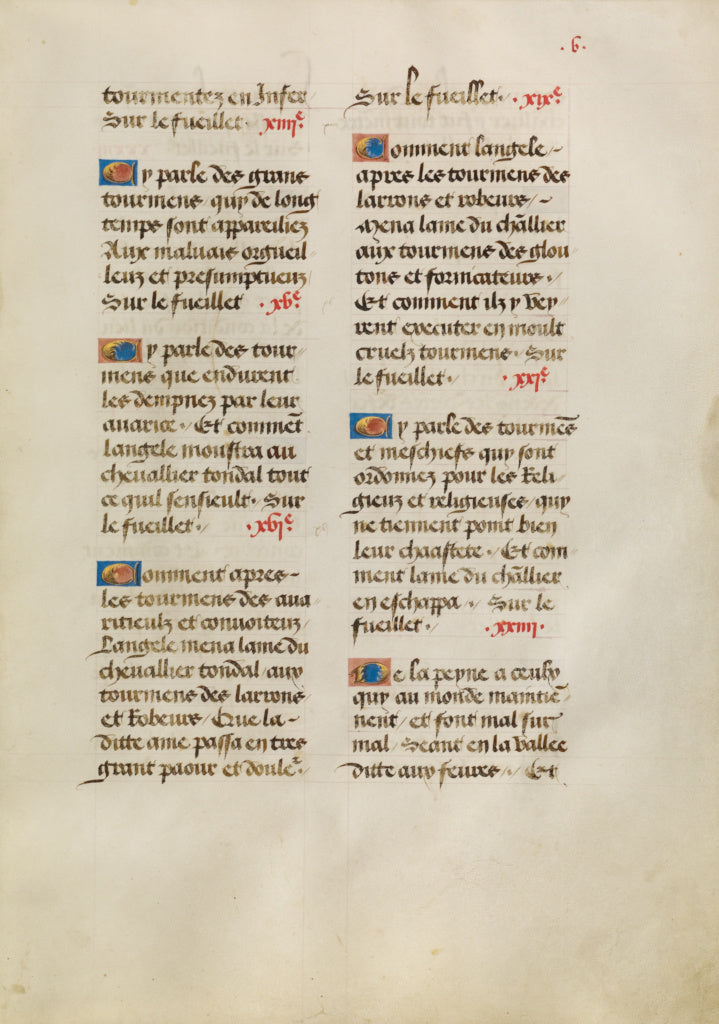 .6.
tourmentez en Infer
Sur le fueillet · xiiiie
Cy parle des grans
tourmens / quy de long
temps sont appareilliez
Aux malvais orgueil
leuz et presumptueuz
Sur le fueillet · xve
Cy parle des tour
mens que endurent
les dempnez par leur
avarice · Et comment̄
langele monstra au
chevallier tondal tout
ce quil sensieult · Sur
le fueillet · xvie
Comment apres -
les tourmens des ava
riticulz et convoiteuz
Langele mena lame du
chevallier tondal / aux
tourmens des larrons
et Robeurs / Que la -
ditte ame passa en tres
grant paour et douler
Sur le fueillet · xixe
Comment langele -
apres les tourmens des
larrons et robeurs / -
Mena lame du chl̄lier
aux tourmens des glou
tons et fornicateurs ·
Et comment ilz y vey
rent executer en moult
cruelz tourmens · Sur
le fueillet · xxie
Cy parle des tourmēs
et meschiefs quy sont
ordonnez pour les Reli
gieuz et religieuses / quy
ne tiennent point bien
leur chastete · Et com
ment lame du chl̄lier
en eschappa · Sur le
fueillet · xxiiii ·
De la peyne a ceulx
quy au monde maintiē
nent / et font mal sur
mal / Seant en la vallee
ditte aux fevres · Et